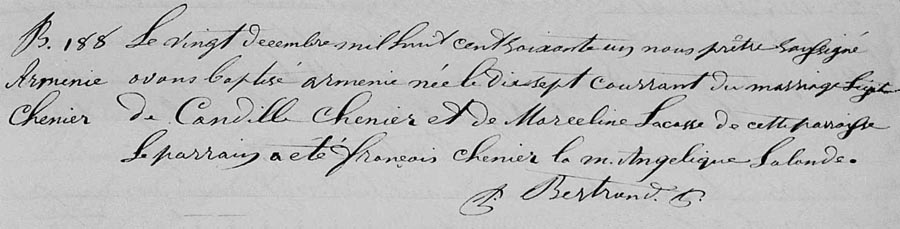 B. 188 Le vingt decembre mil huit cent soixante un nous prêtre soussigné
Armenie avons baptisé armenie née le dix sept courrant du marriage Légit
Chenier de Candille Chenier et de Marceline Lacasse de cette parroisse
Le parrain a été françois chenier la m. Angelique Lalonde.
P. Bertrand. P.